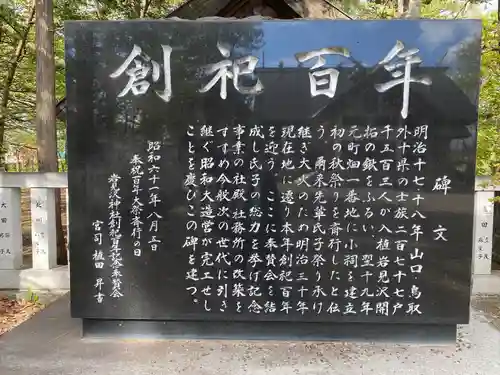 創祀百年
碑文
明治十七十八年山口、鳥取
外十県の士族二百七十七戸
千五百三人が入植岩見沢開
拓の鍬をふるい、翌十九年
元町畑一番地に小祠を建立
初の秋祭りを斉行したと伝
う。爾来先輩氏子祭り承け
継ぎ大火のため明治三十年
現在地に遷り本年創祀百年
を迎う。ここに奉賛会を結
成し氏子の総力を挙げ記念
事業の社殿社務所の改築を
すすめ今般次の世代に引き
継ぐ昭和大造営が完工せし
ことを慶びこの碑を建つ。
昭和六十一年八月三日
奉祝百年大祭斉行の日
岩見沢神社創祀百年記念奉賛会
宮司 植田 昇吉